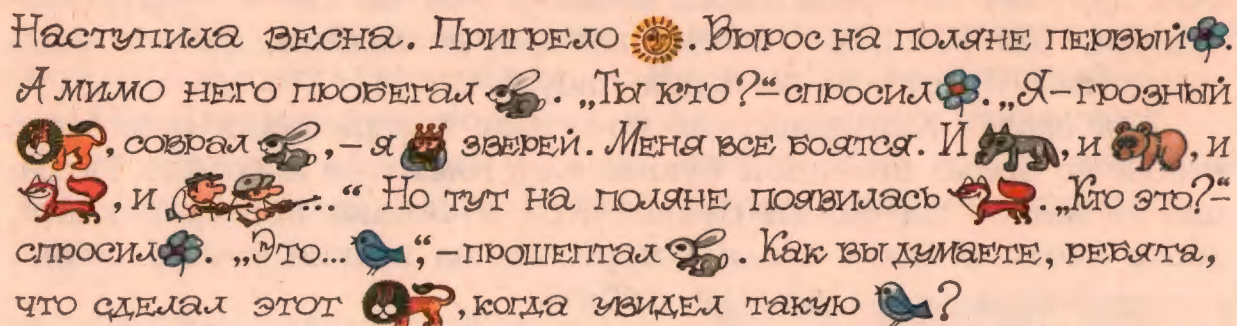 Наступила весна. Пригрело . Вырос на поляне первый .
А мимо него пробегал . „Ты кто?“ – спросил . „Я – грозный
, соврал , – я зверей. Меня все боятся. И , и , и
, и ...“ Но тут на поляне появилась . „Кто это?“ –
спросил . „Это... “, – прошептал . Как вы думаете, ребята,
что сделал этот , когда увидел такую ?